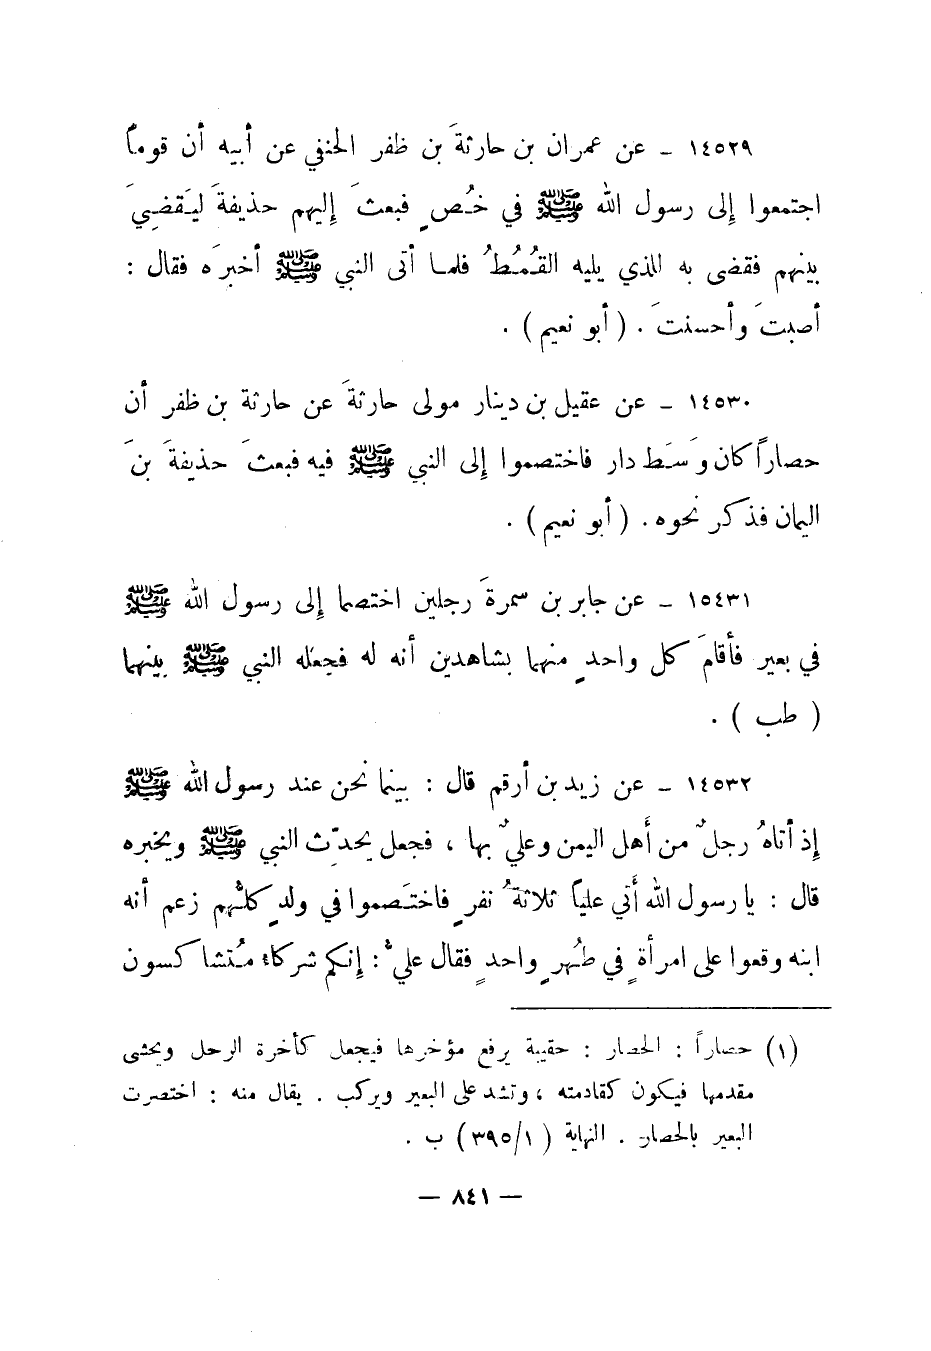 ١٤٥٢٩ ـ عن عمران بن حارثةَ بن ظفر الحنفي عن أبيه أن قوماً
اجتمعوا إلى رسول الله ﷺ في خُصٍ فبعثَ إليهم حذيفةَ ليَقضِيَ
بينهم فقضى به للذي يليه القُمُطُ فلمـا أتى النبي ﷺ أخبرَه فقال :
أصبتَ وأحسنتَ . ( أبو نعيم ) .
١٤٥٣٠ ـ عن عقيل بن دينار مولى حارثةَ عن حارثة بن ظفر أن
حصاراً كان وَسَط دار فاختصموا إلى النبي ﷺ فيه فبعثَ حذيفةَ بنَ
اليمان فذكر نحوه . ( أبو نعيم ) .
١٥٤٣١ ـ عن جابر بن سمرةَ رجلين اختصما إلى رسول الله ﷺ
في بعير فأقامَ كل واحدٍ منهما بشاهدين أنه له فجعله النبي ﷺ بينهما
( طب ) .
١٤٥٣٢ ـ عن زيد بن أرقم قال : بينما نحن عند رسول الله ﷺ
إذ أتاهُ رجلٌ من أَهل اليمن وعليٌ بها ، فجعل يحدّث النبي ﷺ ويخبره
قال : يا رسول الله أَتي علياً ثلاثةُ نفرٍ فاختَصموا في ولدٍ كلُّهم زعم أنه
ابنه وقعوا على امرأةٍ في طُهرٍ واحدٍ فقال عليٌّ : إنكم شركاء مُتشاكسون
(١) حصاراً : الحصار : حقيبة يرفع مؤخرها فيجعل كأخرة الرحل ويحشى
مقدمها فيكون كقادمته ، وتشد على البعير ويركب . يقال منه : احتصرت
البعير بالحصار . النهاية ( ٣٩٥/١ ) ب .
— ٨٤١ —